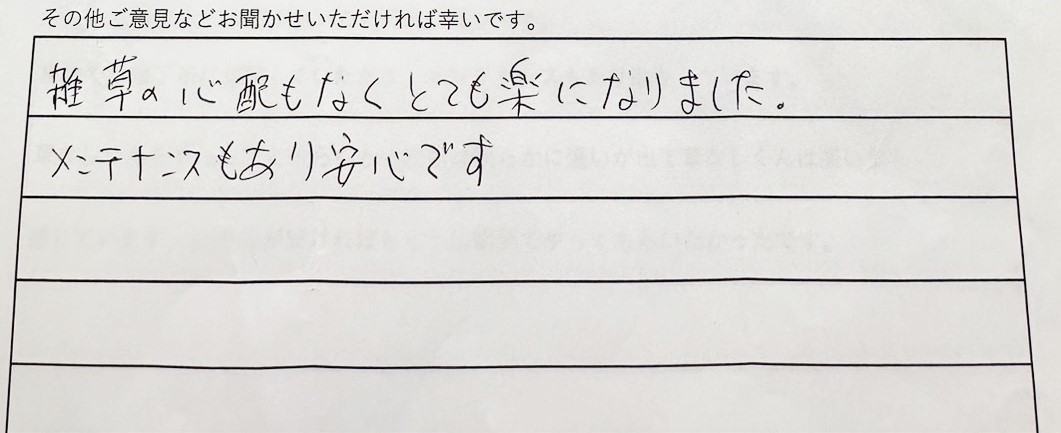 その他ご意見などお聞かせいただければ幸いです。
雑草の心配もなくとても楽になりました。
メンテナンスもあり安心です